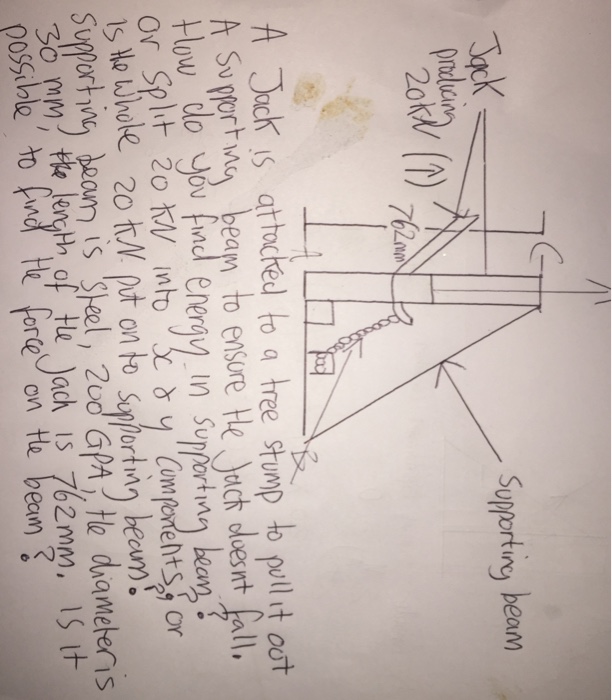 Jack
producing
20kN (↑)
762mm
A
B
C
Supporting beam
A Jack is attatched to a tree stump to pull it out
A supporting beam to ensure the Jack doesnt fall.
How do you find energy in supporting beam?
or split 20 kN into x & y components, or
is the whole 20 kN put on to supporting beam?
Supporting beam is steel, 200 GPA, the diameter is
30 mm, the length of the Jack is 762mm. Is it
possible to find the force on the beam?